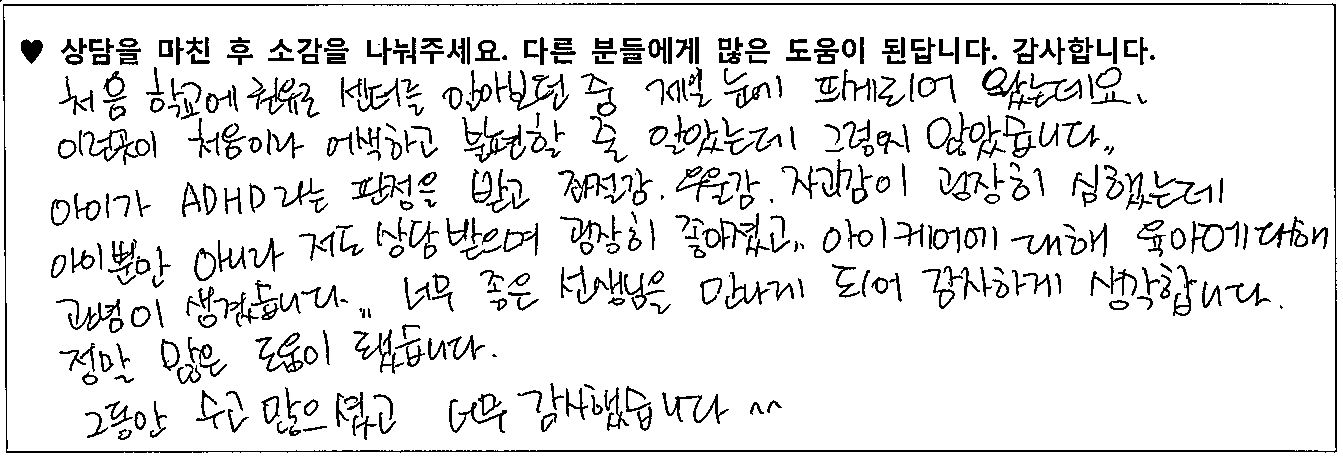 ♥ 상담을 마친 후 소감을 나눠주세요. 다른 분들에게 많은 도움이 된답니다. 감사합니다.
처음 학교에 권유로 센터를 알아보던 중 제일 눈에 띄게되어 왔는데요.
이런곳이 처음이라 어색하고 불편할 줄 알았는데 그렇지 않았습니다..
아이가 ADHD라는 판정을 받고 좌절감. 우울감. 자괴감이 굉장히 심했는데
아이뿐만 아니라 저도 상담 받으며 굉장히 좋아졌고.. 아이케어에 대해 육아에 대해
관념이 생겼습니다.. 너무 좋은 선생님을 만나게 되어 감사하게 생각합니다.
정말 많은 도움이 됐습니다.
그동안 수고 많으셨고 너무 감사했습니다 ^^